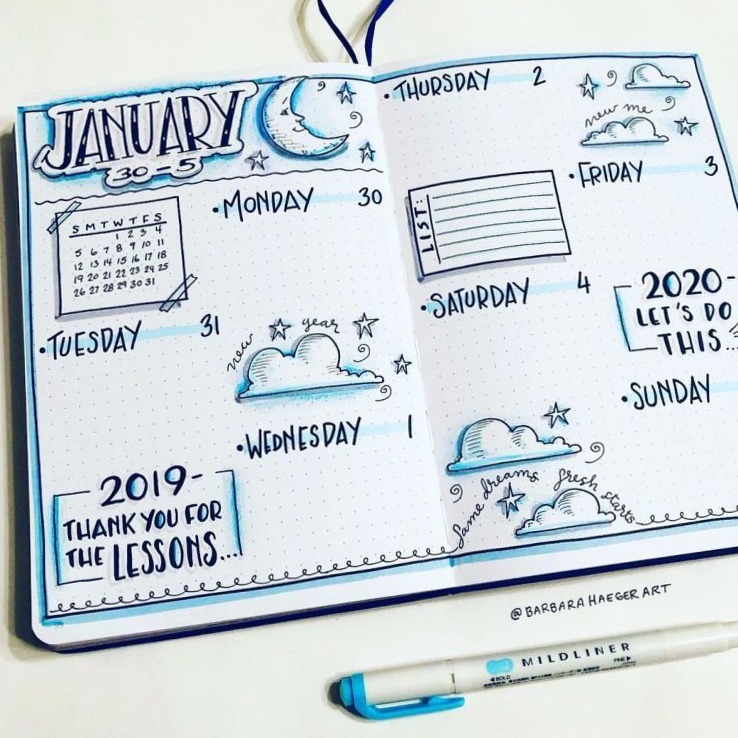 JANUARY
30-5
S M T W T F S
1 2 3 4
5 6 7 8 9 10 11
12 13 14 15 16 17 18
19 20 21 22 23 24 25
26 27 28 29 30 31
•MONDAY 30
•TUESDAY 31
new year
•WEDNESDAY 1
2019-
THANK YOU FOR
THE LESSONS...
•THURSDAY 2
new me
•FRIDAY 3
LIST:
•SATURDAY 4
2020-
LET'S DO
THIS...
•SUNDAY
Same dreams fresh starts
@BARBARAHAEGERART
MILDLINER
◀BOLD
FINE▶